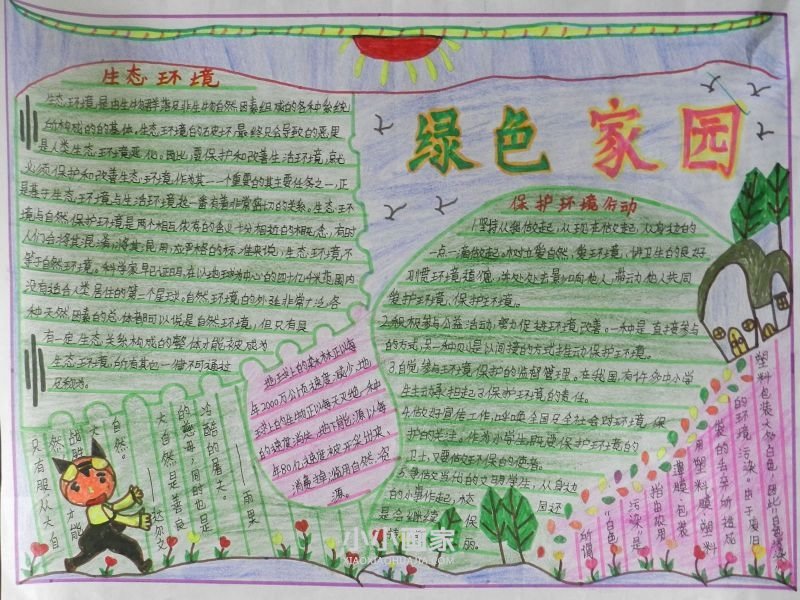 绿色家园
生态环境
生态环境是由生物群落及非生物自然因素组成的各种系统
所构成的的整体，生态环境的破坏，最终只会导致的恶果
是人类生态环境恶化。因此，要保护和改善生活环境，就
必须保护和改善生态环境，作为其一个重要的其主要任务之一，正
是基于生态环境与生活环境这一番有着非常密切的关系。生态环
境与自然保护环境是两个相互依有的含义十分相拉的相概态，有时
人们会将其混淆，将其民用，应严格的标准来说，生态环境不
等于自然环境。科学家早已证明，在以地球为中心的四十亿千米范围内
没有适合人类居住的第一个星球。自然环境的外延非常广泛，各
种天然因素的总体都可以说是自然环境，但只有具
有一定生态关系构成的整体才能被成为
生态环境，所有其他一律不可通过
保护环境行动
1.坚持从我做起，从现在做起，从身边的
一点一滴做起。树立爱自然，爱环境，讲卫生的良好
习惯环境道德，并处处去影响他人，带动他人共同
爱护环境，保护环境。
2.积极参与公益活动，努力促进环境改善。一种是直接参与
的方式，另一种则是以间接的方式推动保护环境。
3.自觉参与环境保护的监督管理。在我国，有许多中小学
生主动承担起了保护环境的责任。
4.做好宣传工作，呼唤全国及全社会对环境保
护的关注。作为小学生既要保护环境的
卫士，又要做好环保的使者。
5.争做文明的文明学生，从身边
的小事作起，
地球上的森林正以每
年2000万公顷速度减少，地
球上的生物正以每天
的速度消失，地下能源以每
年80亿速度被开采出来，
消耗掉，滥用自然资
源。
大自然是善良
的慈母，同时也是
冷酷的屠夫。
——雨果
只有服从大自
然，才能
战胜大
自然。
——达尔文
所谓
“白色
污染”是
指由农用
薄膜、包装
用塑料膜、塑料
袋的丢弃所造成
的环境污染。由于废旧
塑料包装大多白色，因此“白色污染”
小小画家
XIAOXIAOHUAJIA.COM